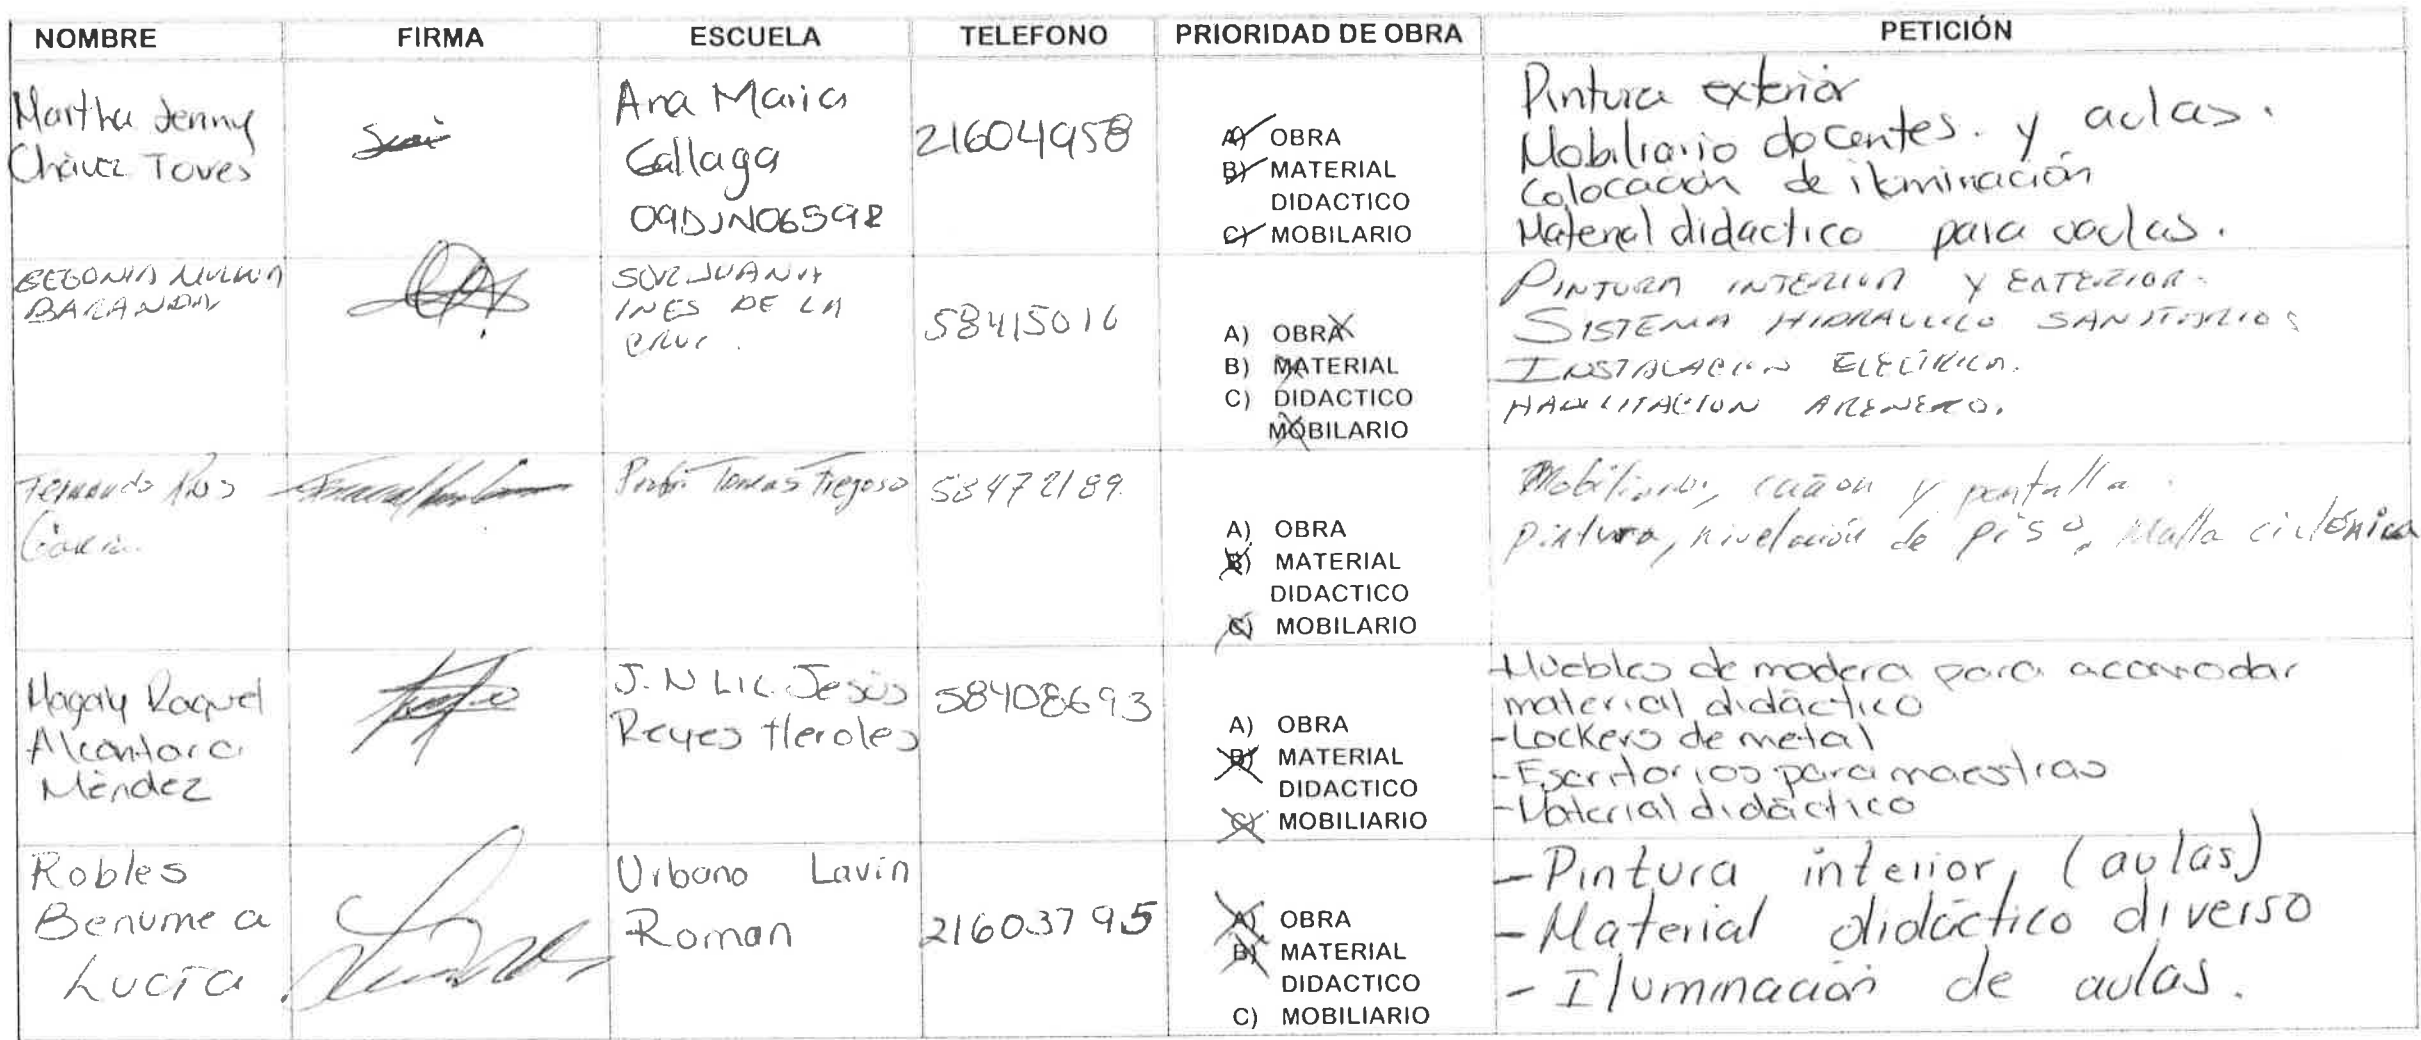 NOMBRE FIRMA ESCUELA TELEFONO PRIORIDAD DE OBRA PETICIÓN
Martha Jenny
Chávez Torres
Ana Maria
Gallaga
09DJN0659R
21604958
A) OBRA
B) MATERIAL
DIDACTICO
C) MOBILARIO
Pintura exterior
Mobiliario docentes. y aulas.
Colocación de iluminación
Material didactico para aulas.
BEGONIA
BARANDA
SOR JUANA
INES DE LA
CRUZ.
58415016
A) OBRA
B) MATERIAL
C) DIDACTICO
MOBILARIO
PINTURA INTERIOR Y EXTERIOR.
SISTEMA HIDRAULICO SANITARIOS
INSTALACION ELECTRICA.
HABILITACION ARENERO.
Fernando Ríos
García.
Profr. Tomas Fregoso
58472189.
A) OBRA
B) MATERIAL
DIDACTICO
C) MOBILARIO
Mobiliario, cañon y pantalla.
pintura, nivelación de piso, Malla ciclónica
Magaly Raquel
Alcantara
Méndez
J.N Lic. Jesús
Reyes Heroles
58408693
A) OBRA
B) MATERIAL
DIDACTICO
C) MOBILIARIO
-Muebles de madera para acomodar
material didáctico
-Lockers de metal
-Escritorios para maestras
-Material didáctico
Robles
Benumea
Lucía.
Urbano Lavín
Roman
21603795
A) OBRA
B) MATERIAL
DIDACTICO
C) MOBILIARIO
-Pintura interior, (aulas)
-Material didáctico diverso
-Iluminación de aulas.